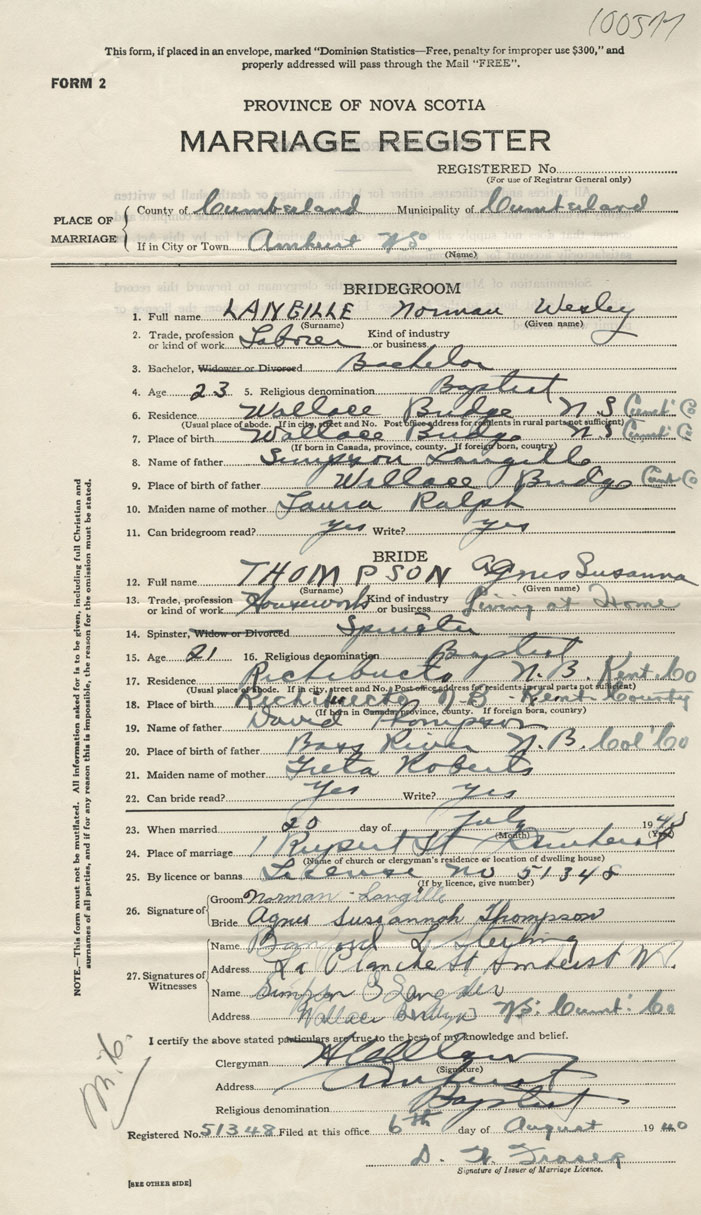 100577
This form, if placed in an envelope, marked "Dominion Statistics—Free, penalty for improper use $300," and
properly addressed will pass through the Mail "FREE".
FORM 2
PROVINCE OF NOVA SCOTIA
MARRIAGE REGISTER
REGISTERED No.
(For use of Registrar General only)
PLACE OF MARRIAGE
County of Cumberland Municipality of Cumberland
If in City or Town Amherst NS
(Name)
BRIDEGROOM
1. Full name LANGILLE Norman Wesley
(Surname) (Given name)
2. Trade, profession or kind of work Laborer Kind of industry or business
3. Bachelor, Widower or Divorced Bachelor
4. Age 23 5. Religious denomination Baptist
6. Residence Wallace Bridge N S Cumb. Co
(Usual place of abode. If in city, street and No. Post office address for residents in rural parts not sufficient)
7. Place of birth Wallace Bridge N S Cumb. Co
(If born in Canada, province, county. If foreign born, country)
8. Name of father Simpson Langille
9. Place of birth of father Wallace Bridge Cumb Co
10. Maiden name of mother Laura Ralph
11. Can bridegroom read? yes Write? yes
BRIDE
12. Full name THOMPSON Agnes Susanna
(Surname) (Given name)
13. Trade, profession or kind of work Housework Kind of industry or business Living at Home
14. Spinster, Widow or Divorced Spinster
15. Age 21 16. Religious denomination Baptist
17. Residence Richibucto N.B. Kent Co
(Usual place of abode. If in city, street and No. Post office address for residents in rural parts not sufficient)
18. Place of birth Richibucto N.B. Kent County
(If born in Canada, province, county. If foreign born, country)
19. Name of father David Thompson
20. Place of birth of father Bass River N.B. Col' Co
21. Maiden name of mother Greta Roberts
22. Can bride read? Yes Write? Yes
23. When married 20 day of July 19
(Month) (Year)
24. Place of marriage 1 Rupert St Amherst
(Name of church or clergyman's residence or location of dwelling house)
25. By licence or banns License no 51348
(If by licence, give number)
26. Signature of
Groom Norman Langille
Bride Agnes Susannah Thompson
27. Signatures of Witnesses
Name L Sterling
Address La Planche St Amherst N.S.
Name Simpson
Address Wallace Bridge NS. Cumb. Co
I certify the above stated particulars are true to the best of my knowledge and belief.
Clergyman
(Signature)
Address Amherst
Religious denomination Baptist
Registered No. 51348 Filed at this office 6th day of August 1940
Signature of Issuer of Marriage Licence.
[SEE OTHER SIDE]
NOTE.—This form must not be mutilated. All information asked for is to be given, including full Christian and
surnames of all parties, and if for any reason this is impossible, the reason for the omission must be stated.